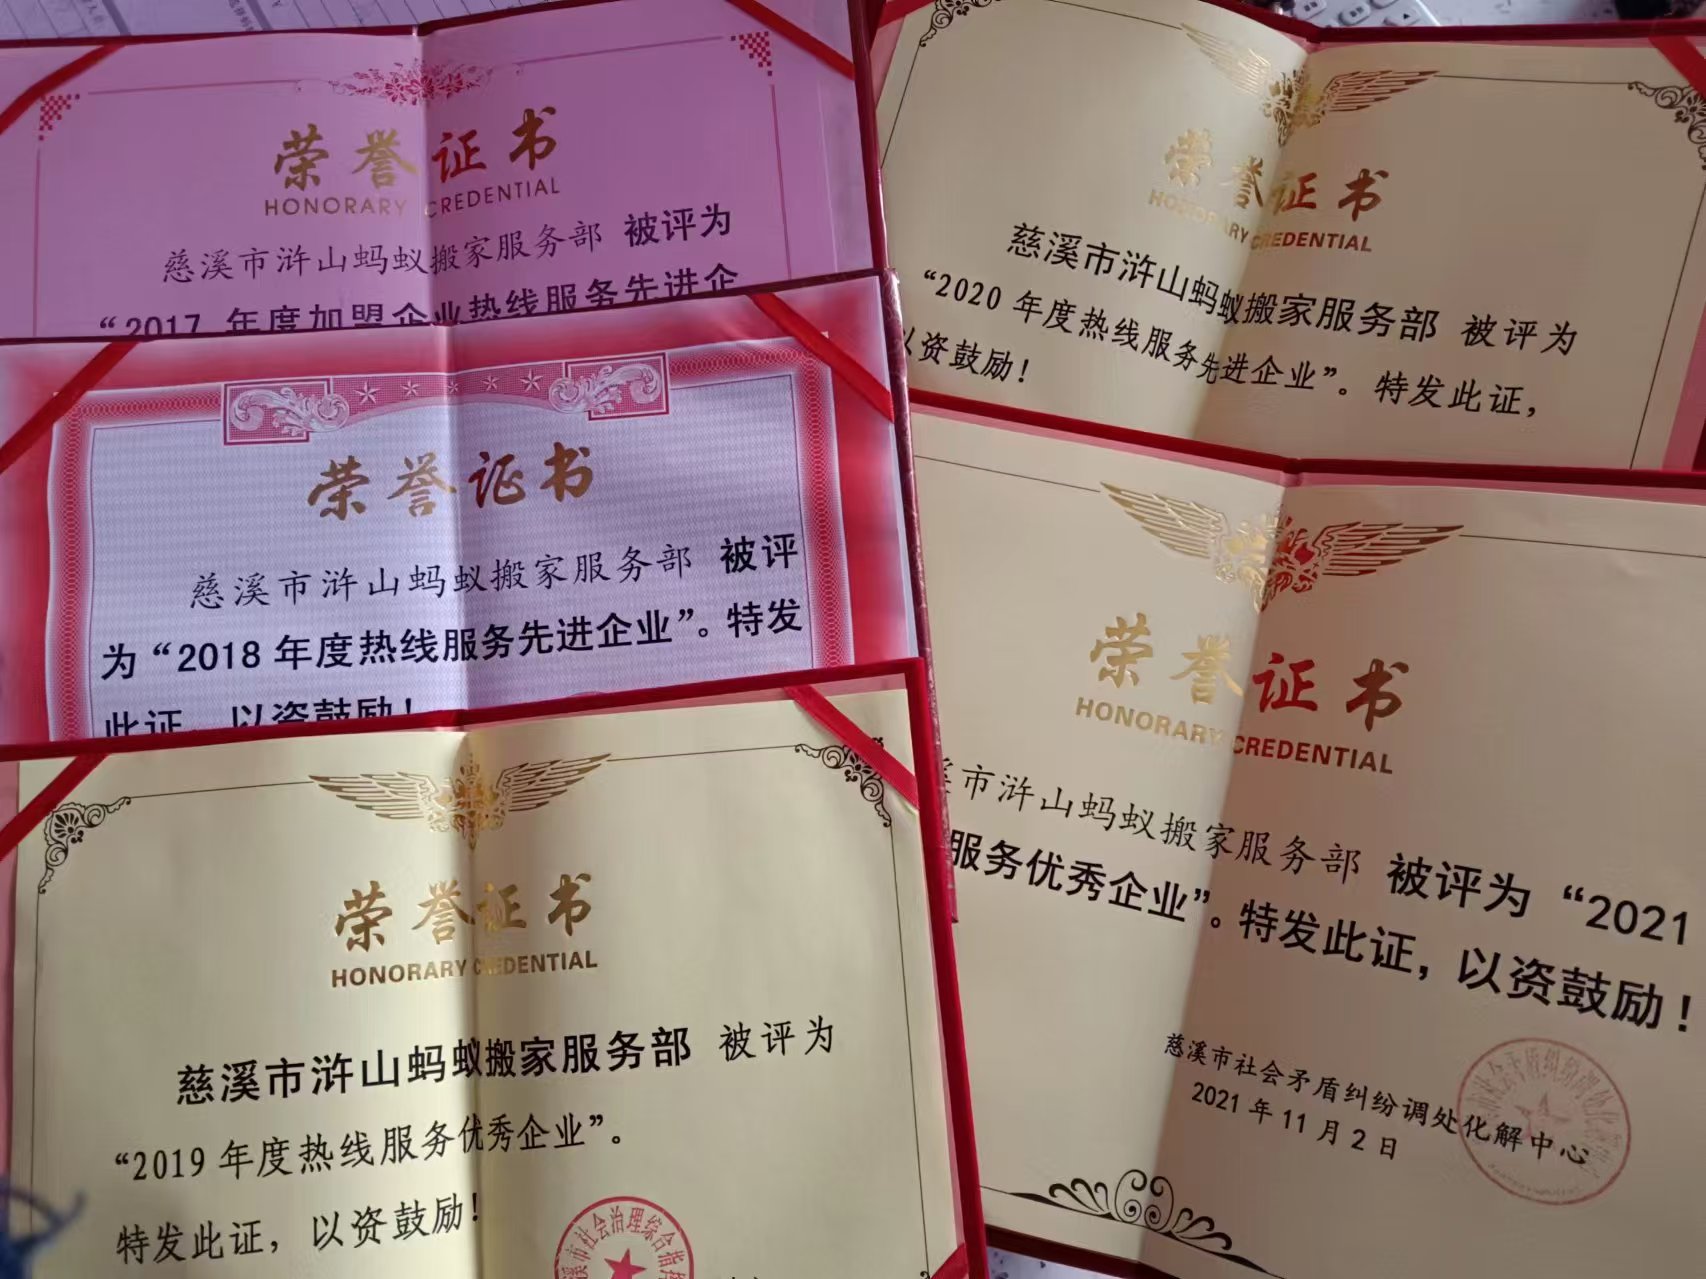 荣誉证书
HONORARY CREDENTIAL
慈溪市浒山蚂蚁搬家服务部 被评为
“2017 年度加盟企业热线服务先进企
荣誉证书
慈溪市浒山蚂蚁搬家服务部 被评
为“2018年度热线服务先进企业”。特发
此证，以资鼓励！
荣誉证书
HONORARY CREDENTIAL
慈溪市浒山蚂蚁搬家服务部 被评为
“2019年度热线服务优秀企业”。
特发此证，以资鼓励！
慈溪市社会治理综合指
荣誉证书
HONORARY CREDENTIAL
慈溪市浒山蚂蚁搬家服务部 被评为
“2020 年度热线服务先进企业”。特发此证，
以资鼓励！
荣誉证书
HONORARY CREDENTIAL
市浒山蚂蚁搬家服务部 被评为“2021
服务优秀企业”。特发此证，以资鼓励！
慈溪市社会矛盾纠纷调处化解中心
2021年11月2日